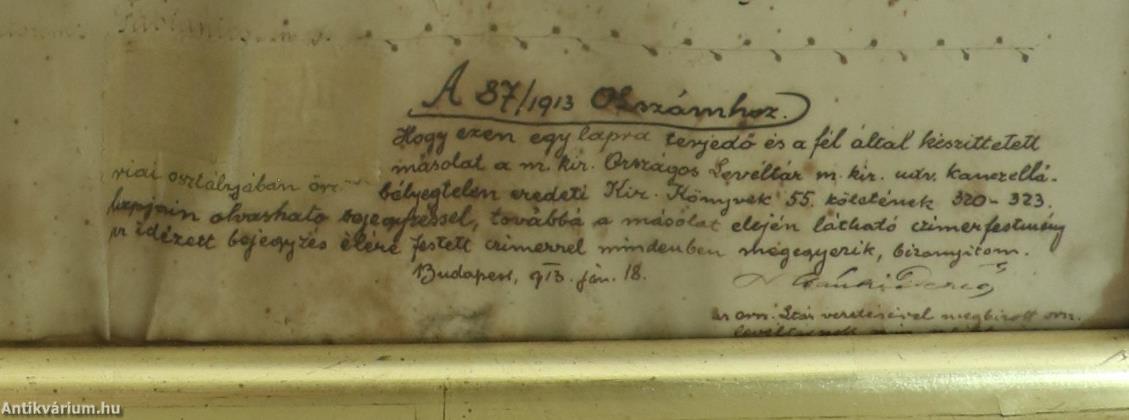 A 87/1913 OL számhoz.
Hogy ezen egy lapra terjedő és a fél által készittetett
másolat a m. kir. Országos Levéltár m. kir. udv. kanczellá-
riai osztályában bélyegtelen eredeti Kir. Könyvek 55. kötetének 320-323.
lapjain olvasható bejegyzéssel, továbbá a másolat elején látható czimerfestmény
idézett bejegyzés élére festett czimerrel mindenben megegyezik, bizonyitom.
Budapest, 913. jan. 18.
az orsz. Ltár vezetésével megbizott orsz.
Antikvárium.hu